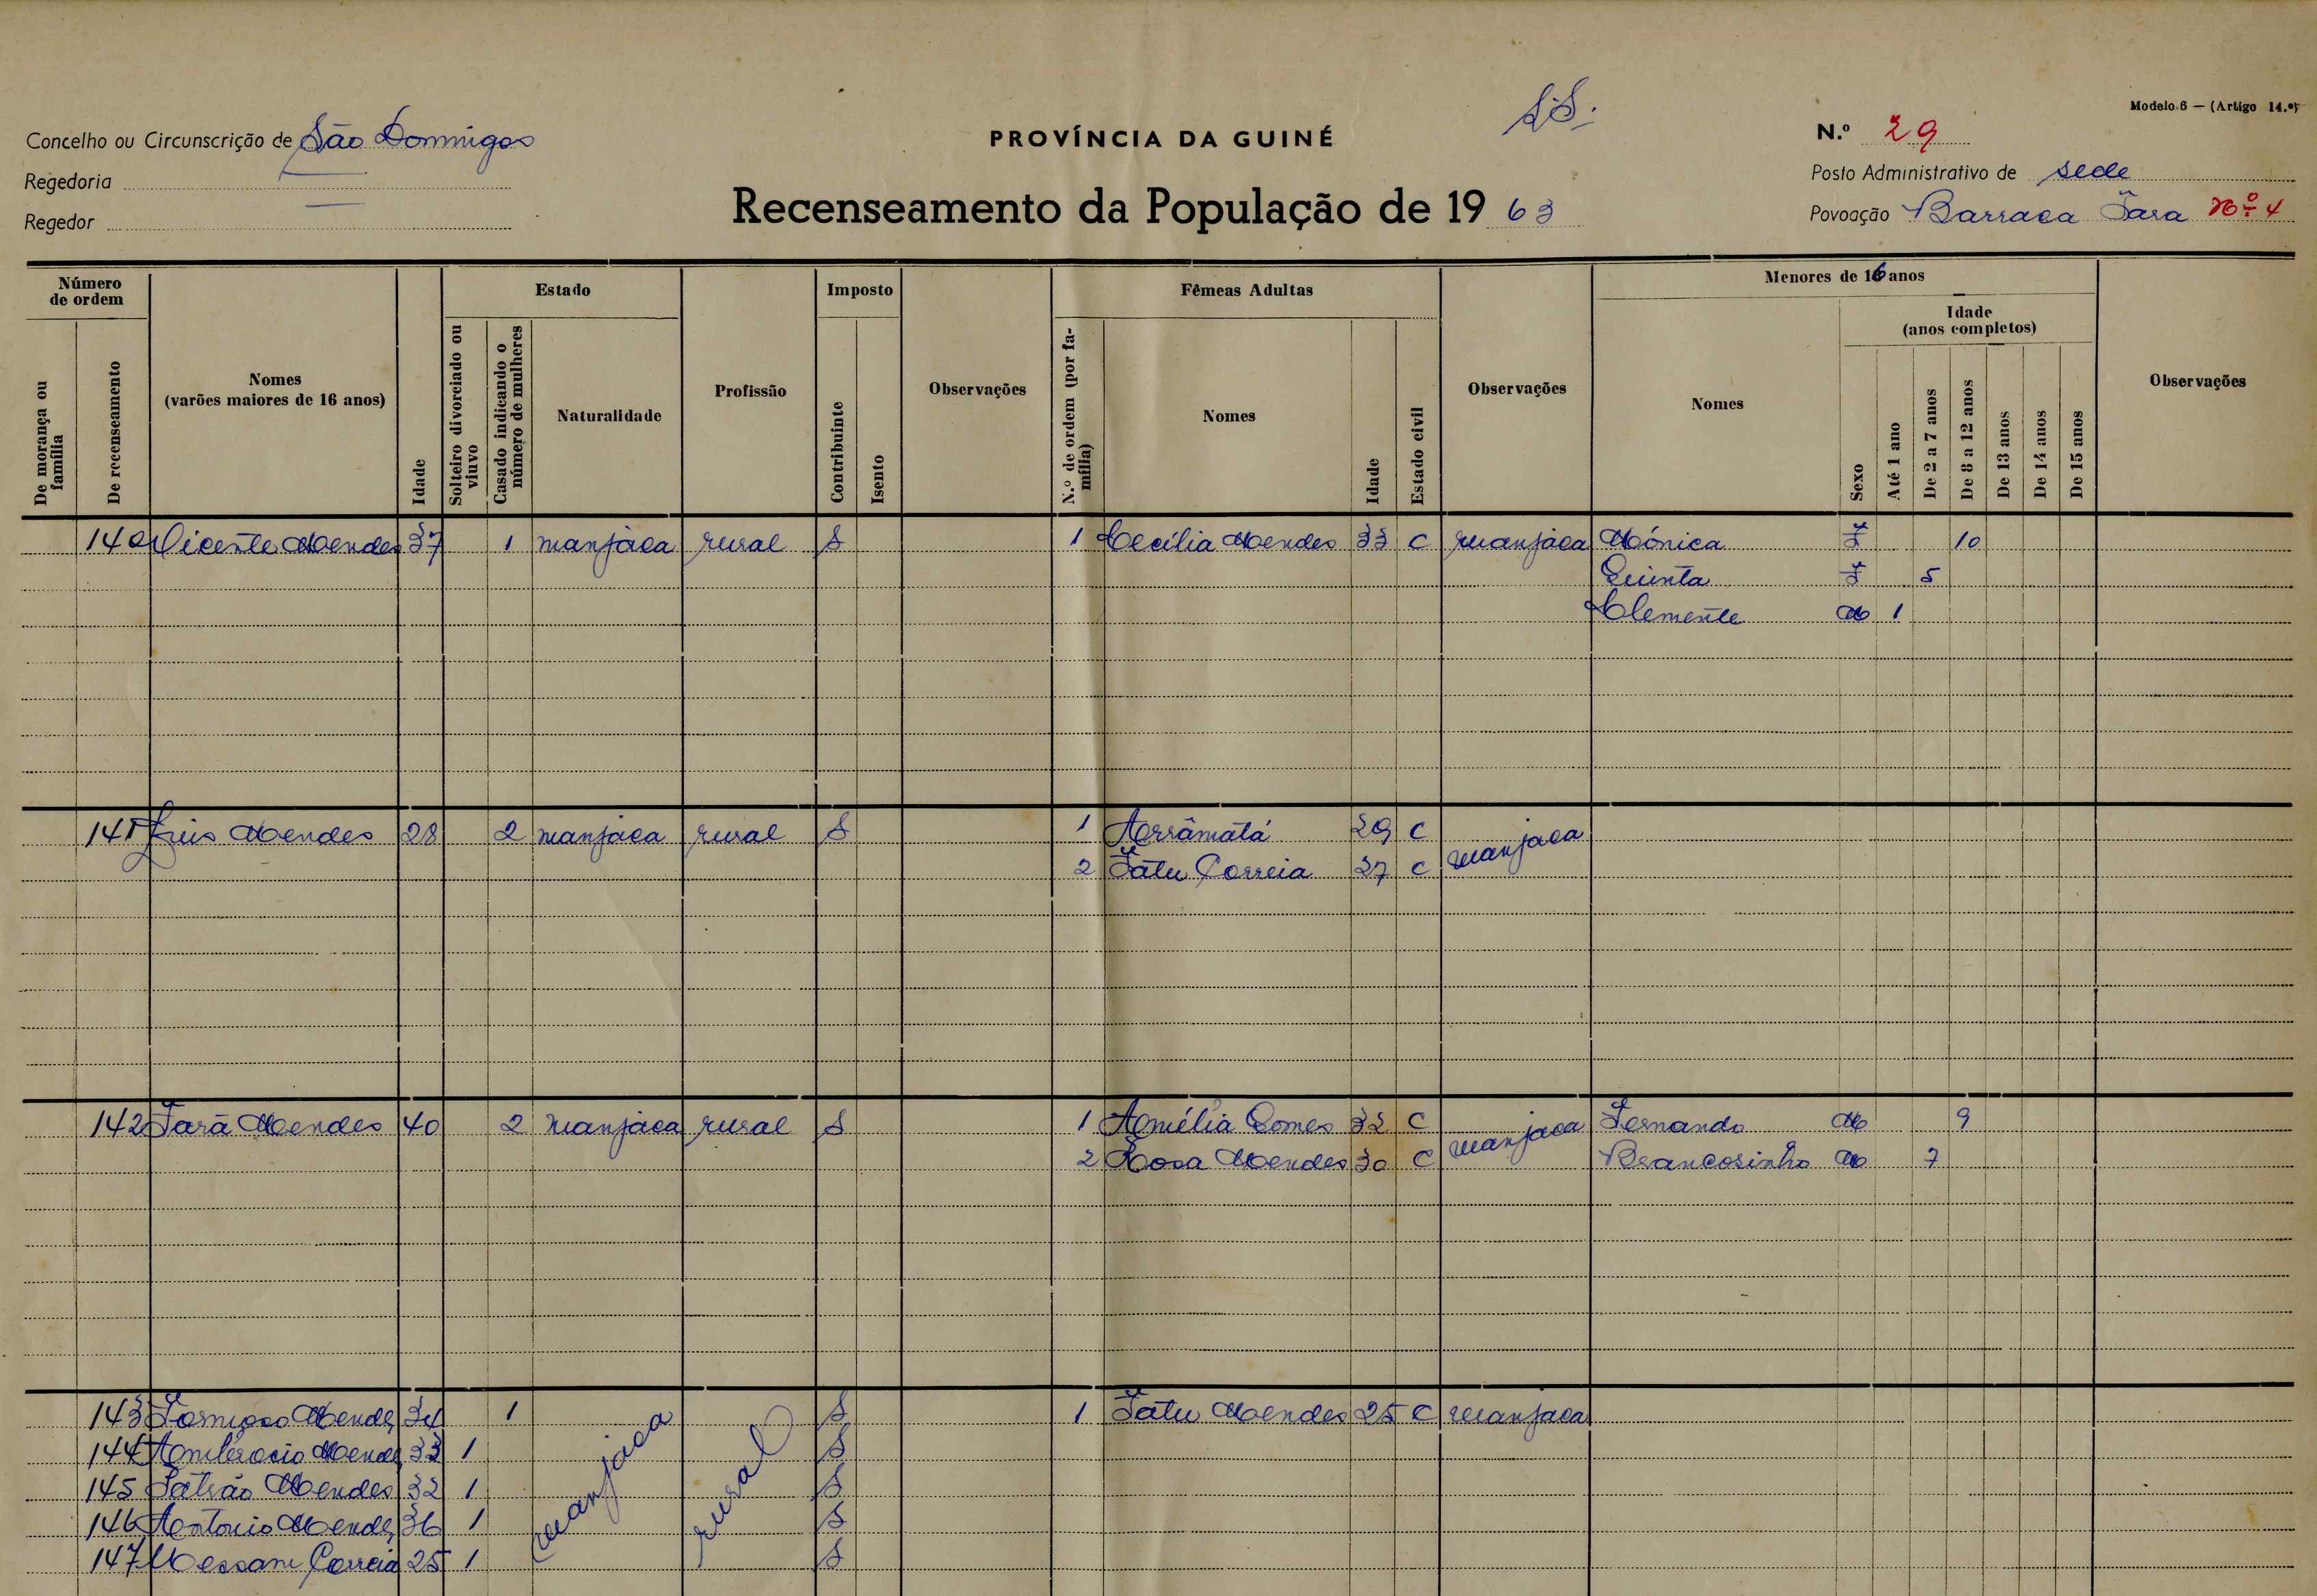 S.S.
Modelo 6 — (Artigo 14.º)
Concelho ou Circunscrição de São Domingos
PROVÍNCIA DA GUINÉ
N.º 29
Regedoria —
Posto Administrativo de sede
Regedor —
Recenseamento da População de 1963
Povoação Barraca Fara Nº 4
Número de ordem
Estado
Imposto
Fêmeas Adultas
Menores de 16 anos
Idade (anos completos)
De morança ou família
De recenseamento
Nomes (varões maiores de 16 anos)
Idade
Solteiro divorciado ou viuvo
Casado indicando o número de mulheres
Naturalidade
Profissão
Contribuinte
Isento
Observações
N.º de ordem (por família)
Nomes
Idade
Estado civil
Observações
Nomes
Sexo
Até 1 ano
De 2 a 7 anos
De 8 a 12 anos
De 13 anos
De 14 anos
De 15 anos
Observações
140 Vicente Mendes 37 1 manjaca rural S 1 Cecília Mendes 33 C manjaca Mónica F 10
Quinta F 5
Clemente M 1
141 Luis Mendes 28 2 manjaca rural S 1 29 C manjaca
2 Fatu Correia 27 C
142 Fará Mendes 40 2 manjaca rural S 1 Amélia Gomes 32 C manjaca Fernando M 9
2 Rosa Mendes 30 C Brancosinho M 7
143 Formoso Mendes 34 1 manjaca rural S 1 Fatu Mendes 25 C manjaca
144 Ambrocio Mendes 33 1 S
145 Mendes 32 1 S
146 Antonio Mendes 36 1 S
147 Correia 25 1 S